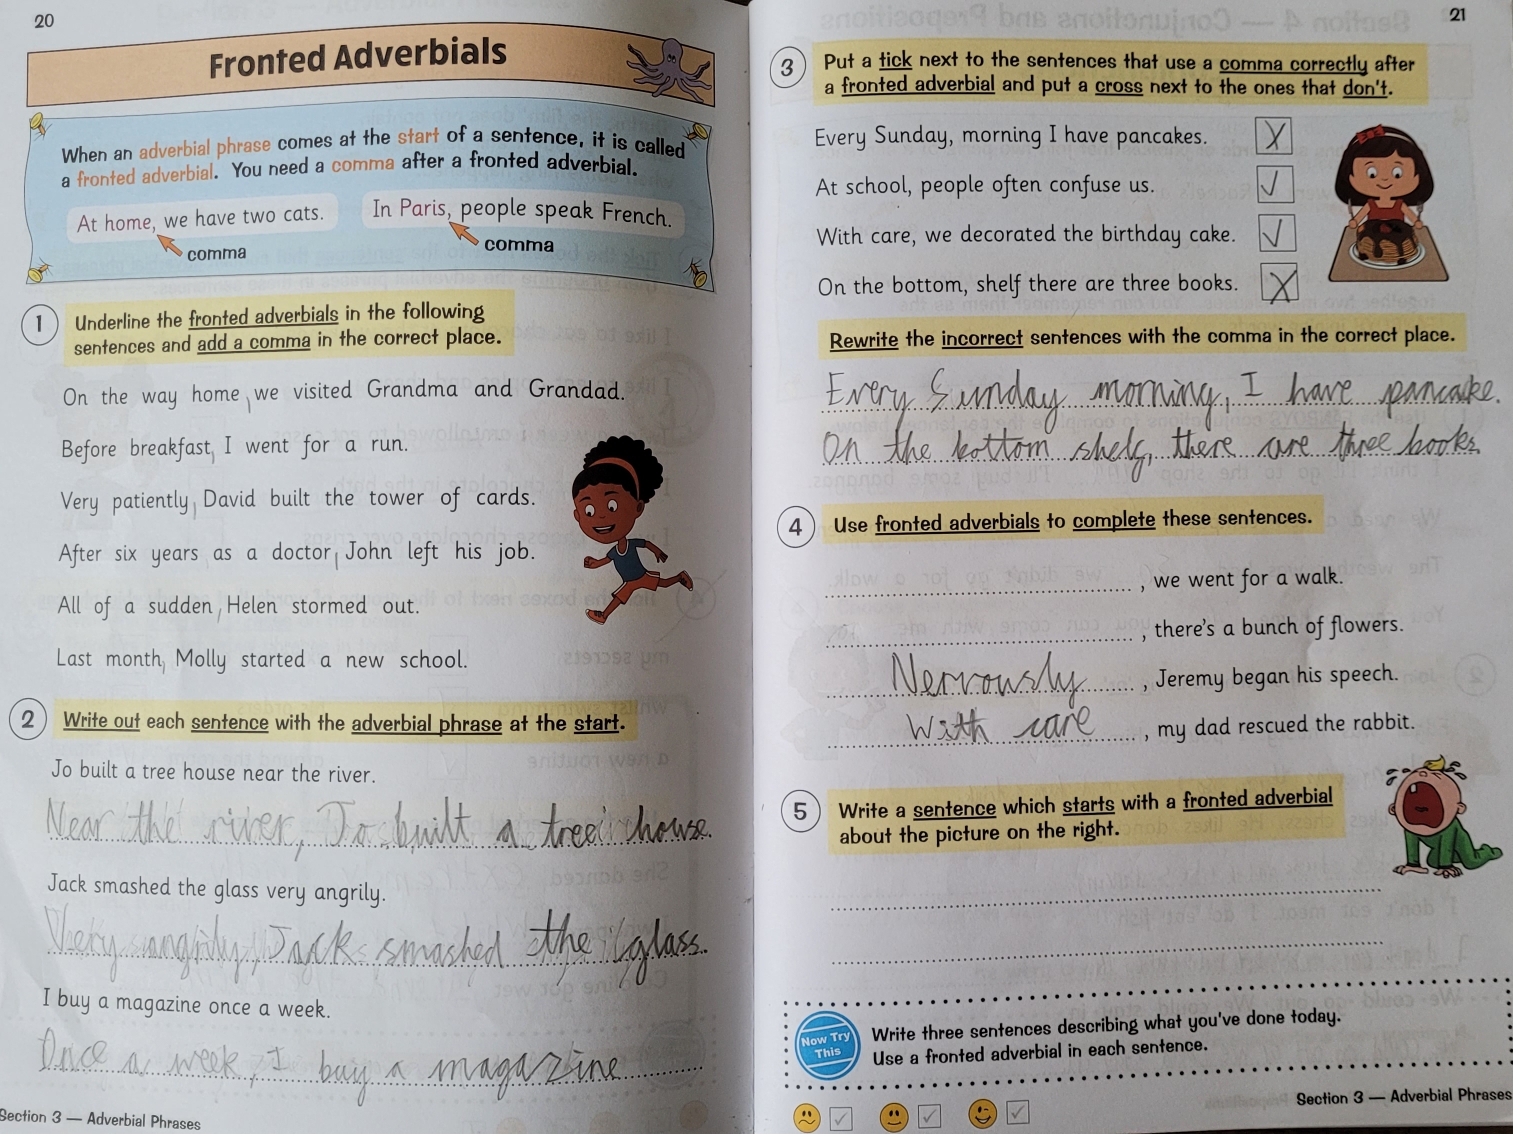 20
Fronted Adverbials
When an adverbial phrase comes at the start of a sentence, it is called
a fronted adverbial. You need a comma after a fronted adverbial.
At home, we have two cats.
In Paris, people speak French.
comma
comma
1
Underline the fronted adverbials in the following
sentences and add a comma in the correct place.
On the way home, we visited Grandma and Grandad.
Before breakfast, I went for a run.
Very patiently, David built the tower of cards.
After six years as a doctor, John left his job.
All of a sudden, Helen stormed out.
Last month, Molly started a new school.
2
Write out each sentence with the adverbial phrase at the start.
Jo built a tree house near the river.
Near the river, Jo built a tree house.
Jack smashed the glass very angrily.
Very angrily, Jack smashed the glass.
I buy a magazine once a week.
Once a week, I buy a magazine
Section 3 — Adverbial Phrases
21
3
Put a tick next to the sentences that use a comma correctly after
a fronted adverbial and put a cross next to the ones that don't.
Every Sunday, morning I have pancakes.
At school, people often confuse us.
With care, we decorated the birthday cake.
On the bottom, shelf there are three books.
Rewrite the incorrect sentences with the comma in the correct place.
Every Sunday morning, I have pancake.
On the bottom shelf, there are three books.
4
Use fronted adverbials to complete these sentences.
, we went for a walk.
, there's a bunch of flowers.
Nervously, Jeremy began his speech.
With care, my dad rescued the rabbit.
5
Write a sentence which starts with a fronted adverbial
about the picture on the right.
Now Try
This
Write three sentences describing what you've done today.
Use a fronted adverbial in each sentence.
Section 3 — Adverbial Phrases